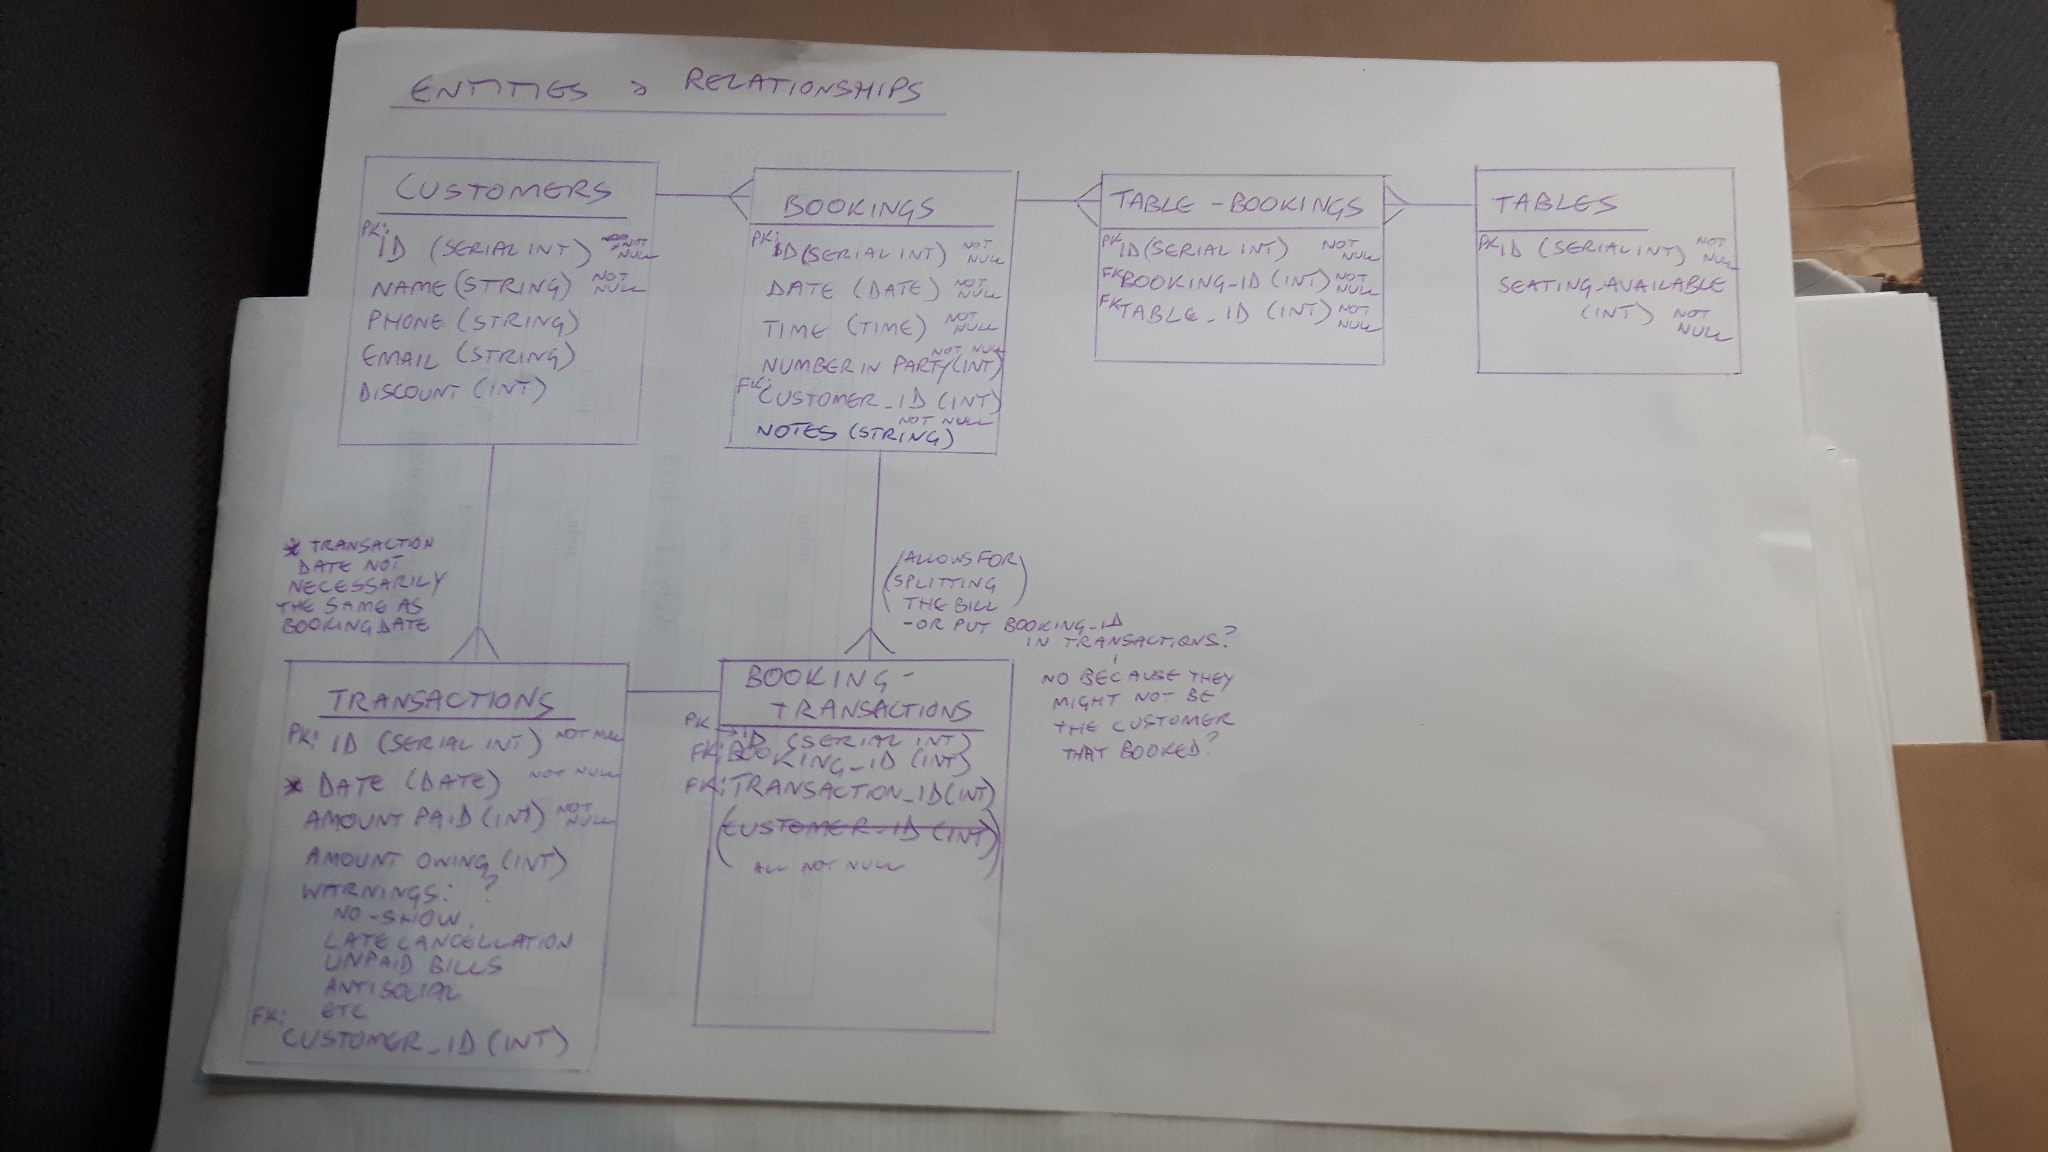 ENTITIES & RELATIONSHIPS
CUSTOMERS
PK:
ID (SERIAL INT) NOT NULL
NAME (STRING) NOT NULL
PHONE (STRING)
EMAIL (STRING)
DISCOUNT (INT)
BOOKINGS
PK:
ID (SERIAL INT) NOT NULL
DATE (DATE) NOT NULL
TIME (TIME) NOT NULL
NOT NULL
NUMBER IN PARTY (INT)
FK:
CUSTOMER_ID (INT)
NOT NULL
NOTES (STRING)
TABLE-BOOKINGS
PK ID (SERIAL INT) NOT NULL
FK BOOKING_ID (INT) NOT NULL
FK TABLE_ID (INT) NOT NULL
TABLES
PK ID (SERIAL INT) NOT NULL
SEATING_AVAILABLE
(INT) NOT NULL
* TRANSACTION
DATE NOT
NECESSARILY
THE SAME AS
BOOKING DATE
(ALLOWS FOR
SPLITTING
THE BILL)
-OR PUT BOOKING_ID
IN TRANSACTIONS?
NO BECAUSE THEY
MIGHT NOT BE
THE CUSTOMER
THAT BOOKED?
TRANSACTIONS
PK: ID (SERIAL INT) NOT NULL
* DATE (DATE) NOT NULL
AMOUNT PAID (INT) NOT NULL
AMOUNT OWING (INT)
WARNINGS: ?
NO-SHOW,
LATE CANCELLATION
UNPAID BILLS
ANTISOCIAL
ETC
FK:
CUSTOMER_ID (INT)
BOOKING-
TRANSACTIONS
PK → ID (SERIAL INT)
FK: BOOKING_ID (INT)
FK: TRANSACTION_ID (INT)
(CUSTOMER_ID (INT))
ALL NOT NULL